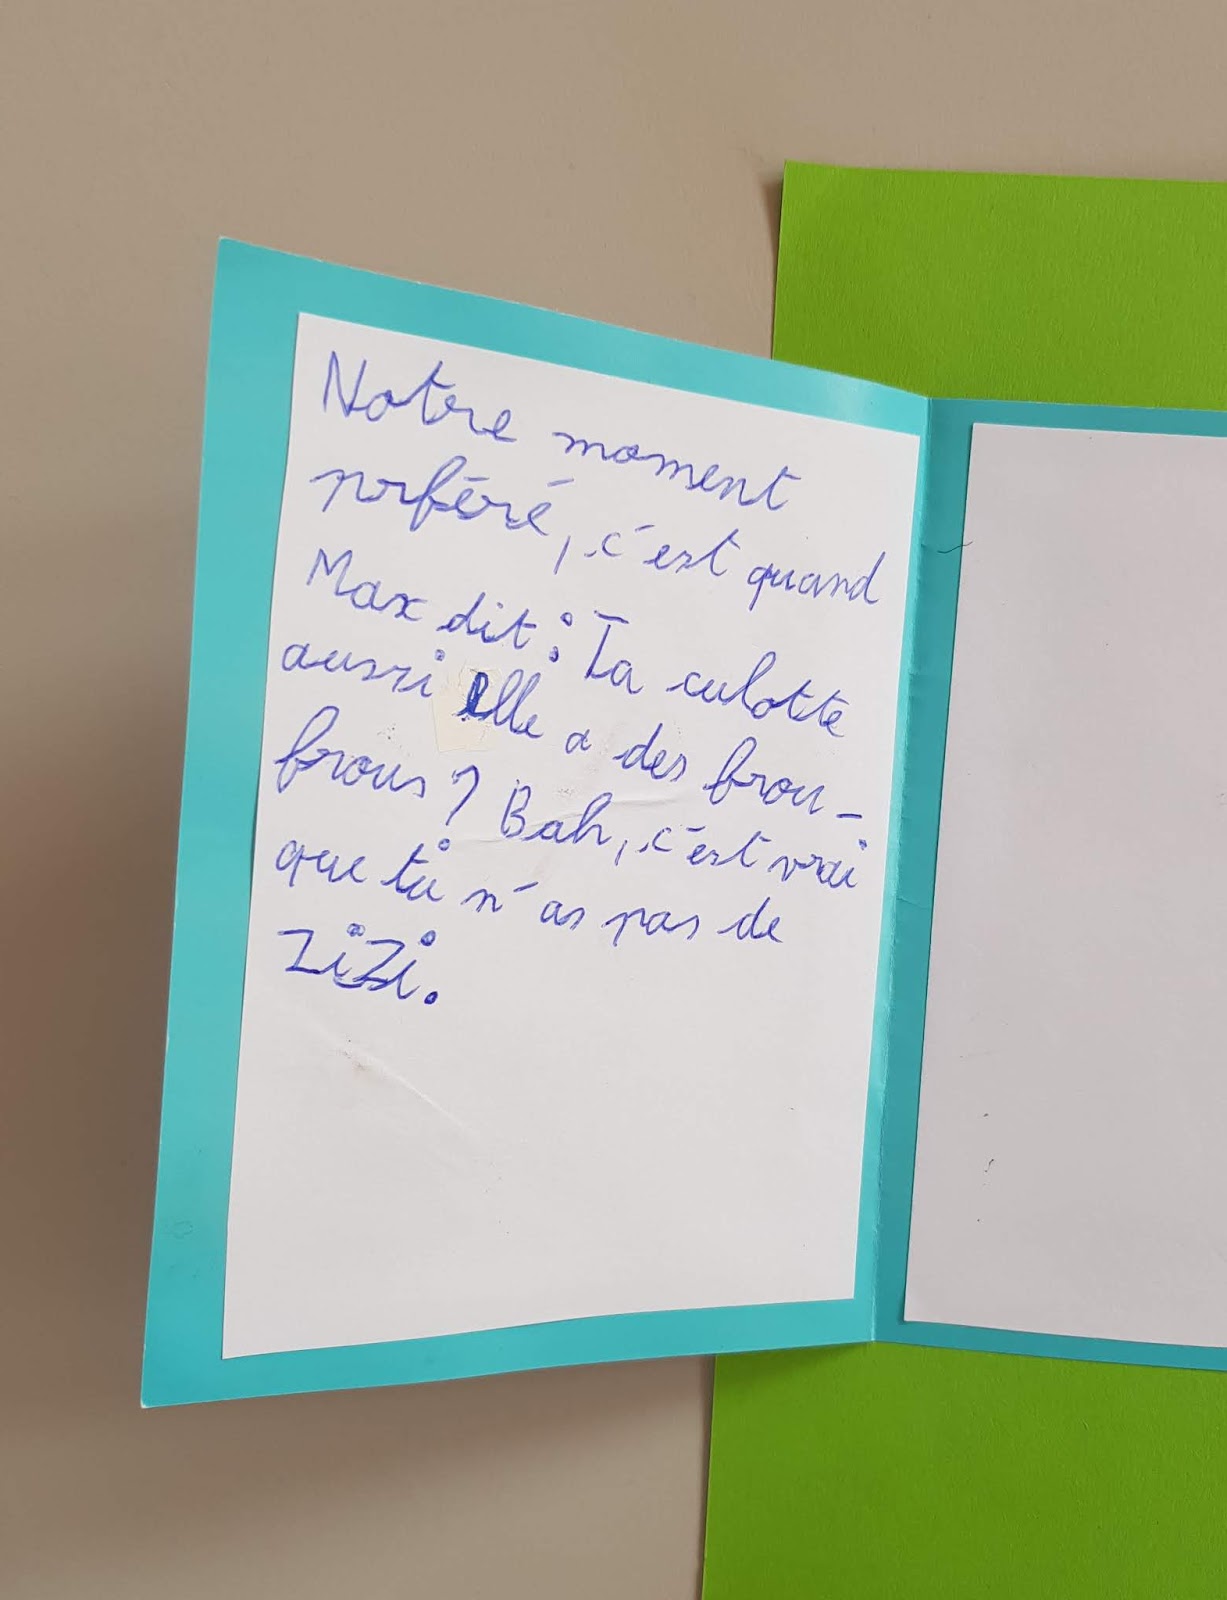 Notre moment
prféré, c'est quand
Max dit : Ta culotte
aussi elle a des frou-
frous ? Bah, c'est vrai
que tu n'as pas de
ZiZi.